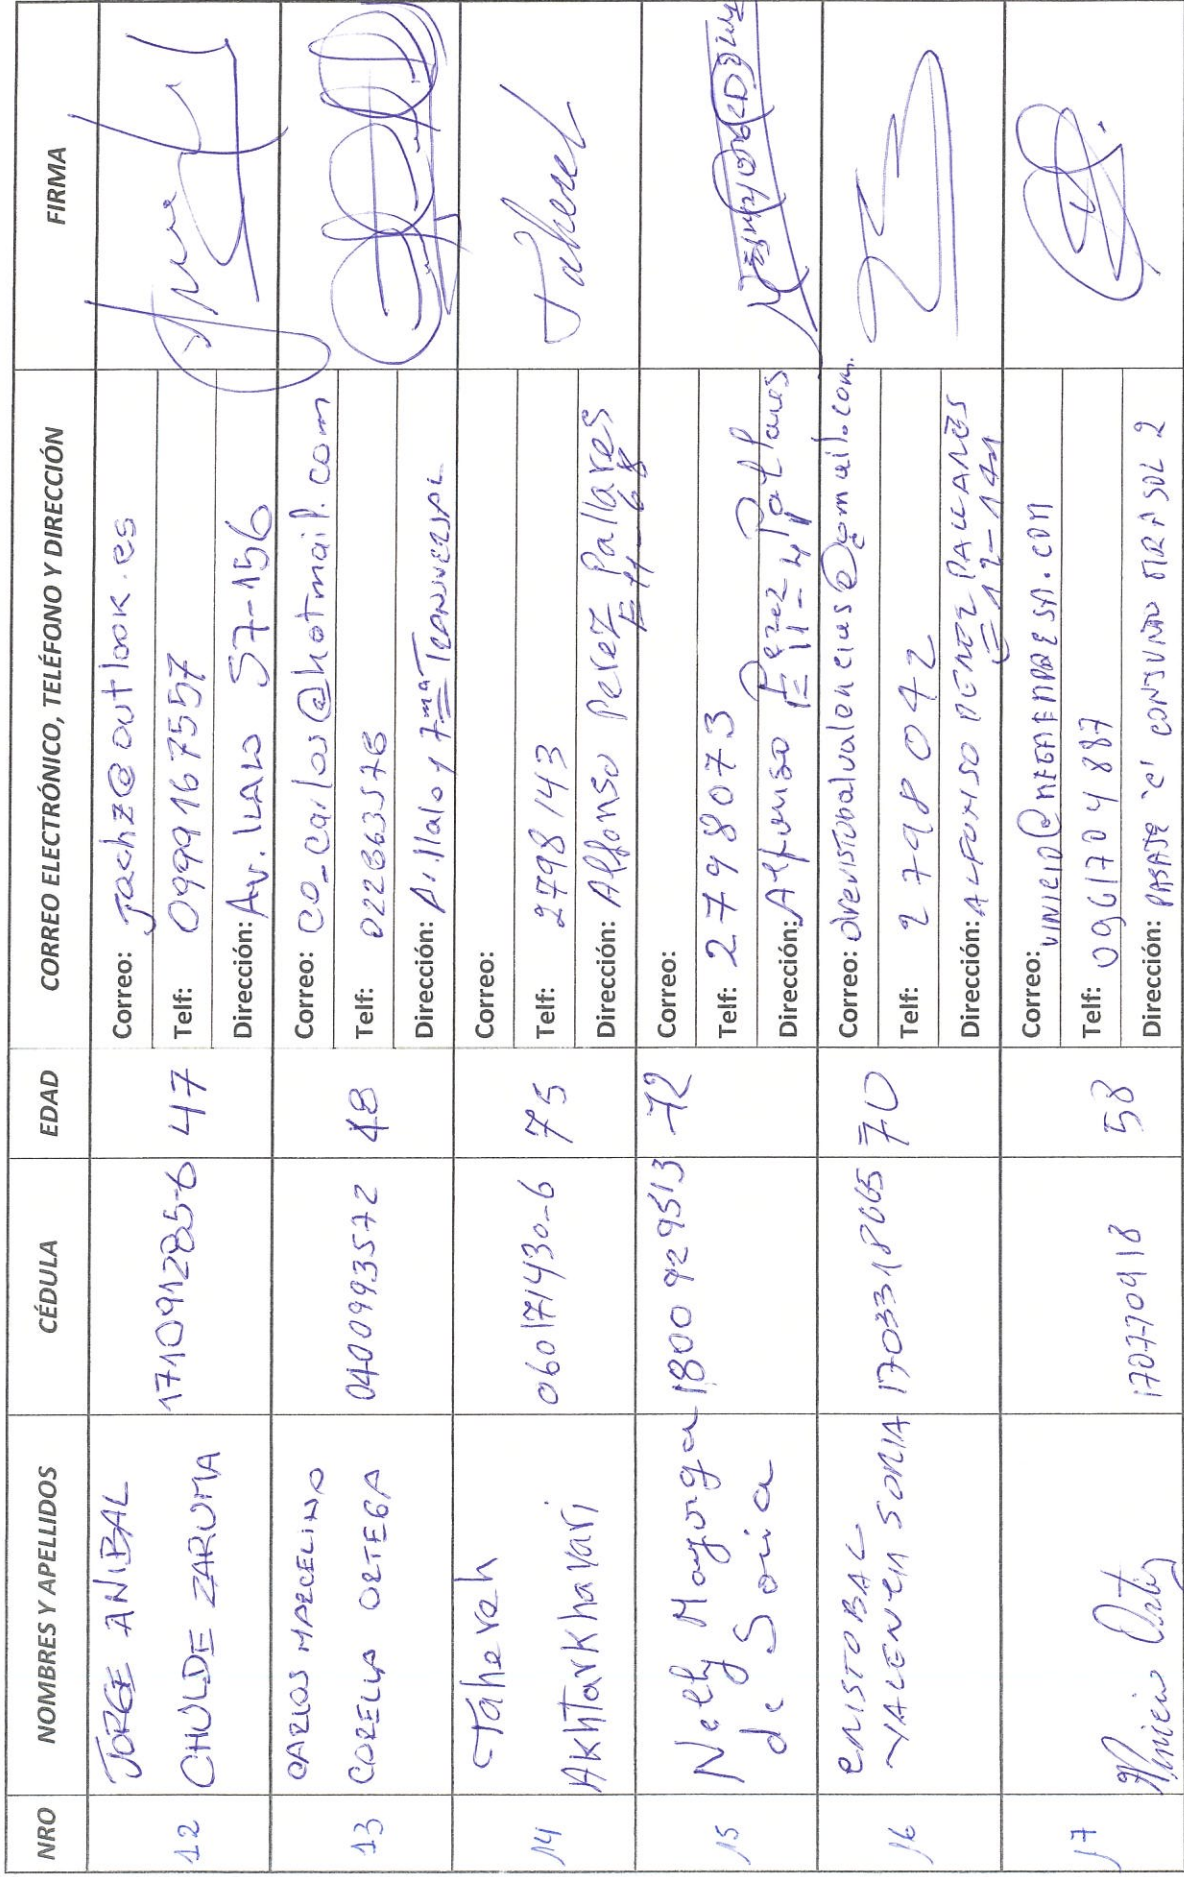 NRO NOMBRES Y APELLIDOS CÉDULA EDAD CORREO ELECTRÓNICO, TELÉFONO Y DIRECCIÓN FIRMA
12
JORGE ANIBAL
CHULDE ZARUMA
171091285-6
47
Correo: jachz@outlook.es
Telf: 0999167557
Dirección: Av. ILALO S7-156
13
CARLOS MARCELINO
CORELLA ORTEGA
0400993572
48
Correo: co_carlos@hotmail.com
Telf: 022863576
Dirección: A. Ilalo y 7ma TRANSVERSAL
14
Tahereh
Akhtarkhavari
060171430-6
75
Correo:
Telf: 2798143
Dirección: Alfonso Perez Pallares
E11-68
Tahereh
15
Nelly Mayorga
de Soria
1800929513
72
Correo:
Telf: 2798073
Dirección: Alfonso Pérez Pallares
16
CRISTOBAL
VALENCIA SORIA
1703318665
70
Correo:
Telf: 2798042
Dirección: ALFONSO PEREZ PALLARES
E12-141
17
Vinicio Ortiz
170770918
58
Correo: VINICIO@MEGAEMPRESA.COM
Telf: 0961704887
Dirección: PASAJE 'C' CONJUNTO MIRASOL 2